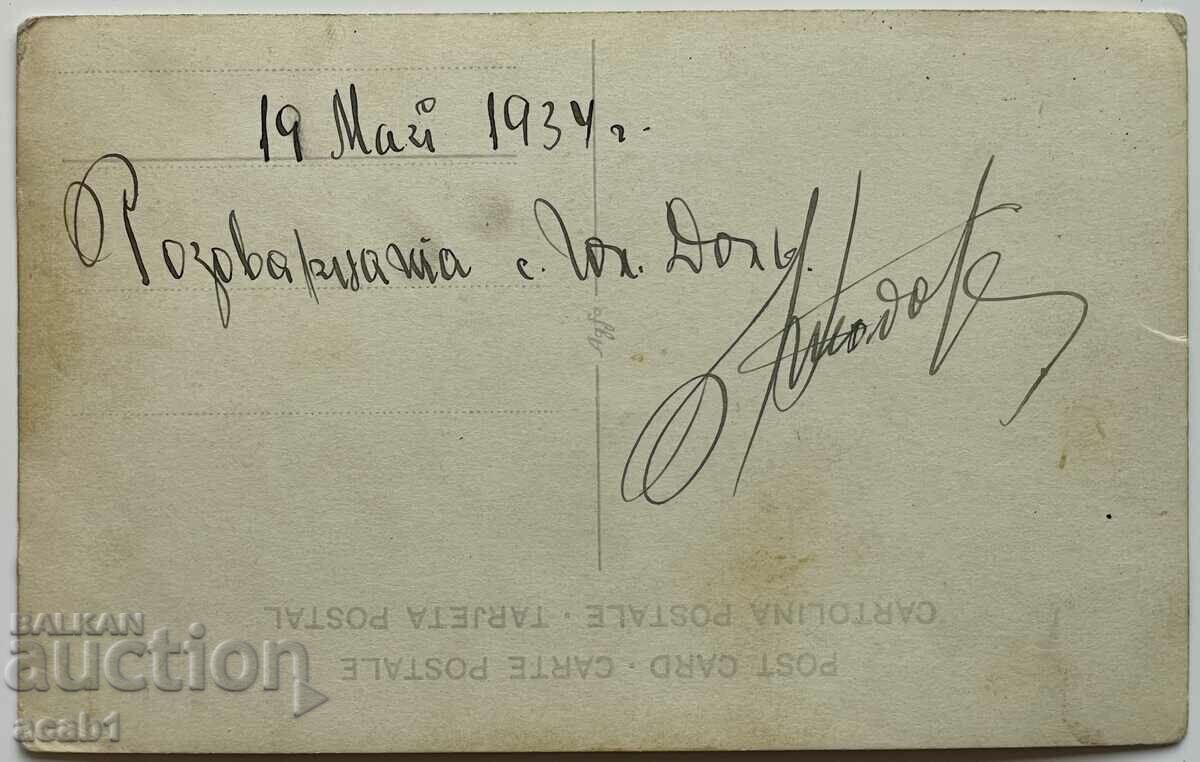 19 Май 1934 г.
Розоварната с. Гол. Долы.
CARTOLINA POSTALE · TARJETA POSTAL
POST CARD · CARTE POSTALE
BALKAN
auction
acab1